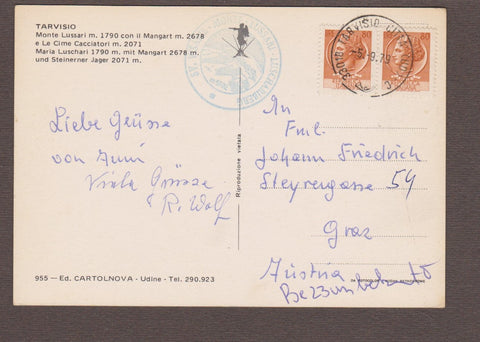 TARVISIO
Monte Lussari m. 1790 con il Mangart m. 2678
e Le Cime Cacciatori m. 2071
Maria Luschari 1790 m. mit Mangart 2678 m.
und Steinerner Jager 2071 m.
Liebe Grüsse
von
Viele Grüsse
R. Wolf
955 — Ed. CARTOLNOVA - Udine - Tel. 290.923
Riproduzione vietata
TARVISIO
9.79
80
80
An
Fml.
Johann Friedrich
Steyrergasse 54
Graz
Austria